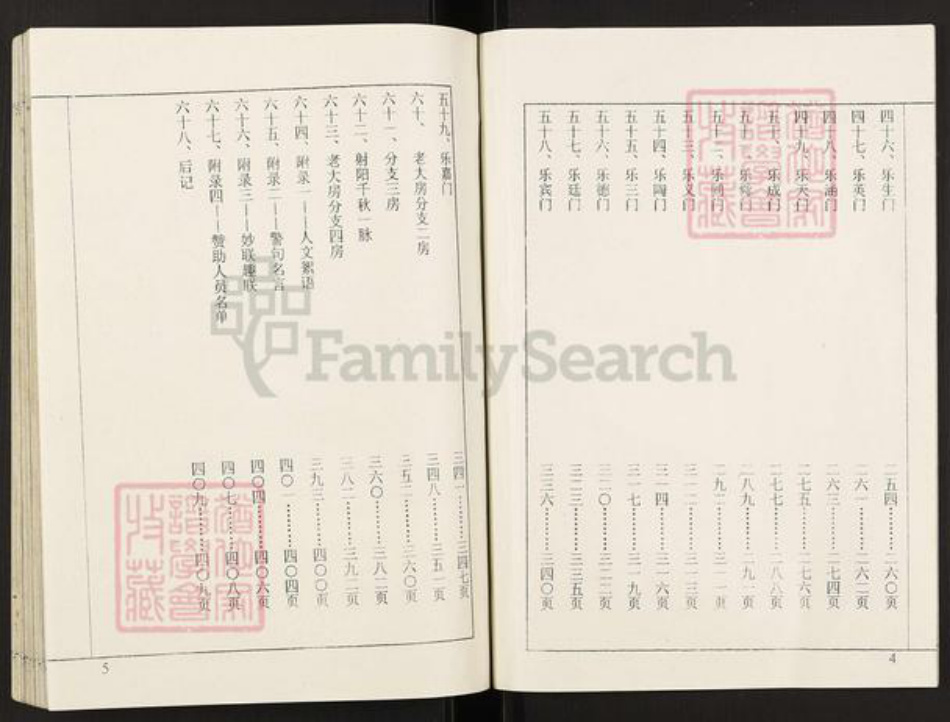 四十六、乐生门 二五四………二六〇页
四十七、乐英门 二六一………二六二页
四十八、乐涵门 二六三………二七四页
四十九、乐天门 二七五………二七六页
五十、乐成门 二七七………二八八页
五十一、门 二八九………二九一页
五十二、门 二九二………页
五十三、乐义门 三一三页
五十四、乐陶门 三一四………三一六页
五十五、乐三门 三一七………三一九页
五十六、乐德门 三二〇………三二二页
五十七、乐廷门 三二三………三三五页
五十八、乐宾门 三三六………三四〇页
4
五十九、乐嘉门 三四一………三四七页
六十、老大房分支二房 三四八………三五一页
六十一、分支三房 三五二………三六〇页
六十二、射阳千秋一脉 三六〇………三八二页
六十三、老大房分支四房 三八二………三九二页
六十四、附录一——人文絮语 三九三………四〇〇页
六十五、附录二——警句名言 四〇一………四〇四页
六十六、附录三——妙联趣联 四〇四………四〇六页
六十七、附录四——赞助人员名单 四〇七………四〇八页
六十八、后记 四〇九………四〇九页
5
FamilySearch